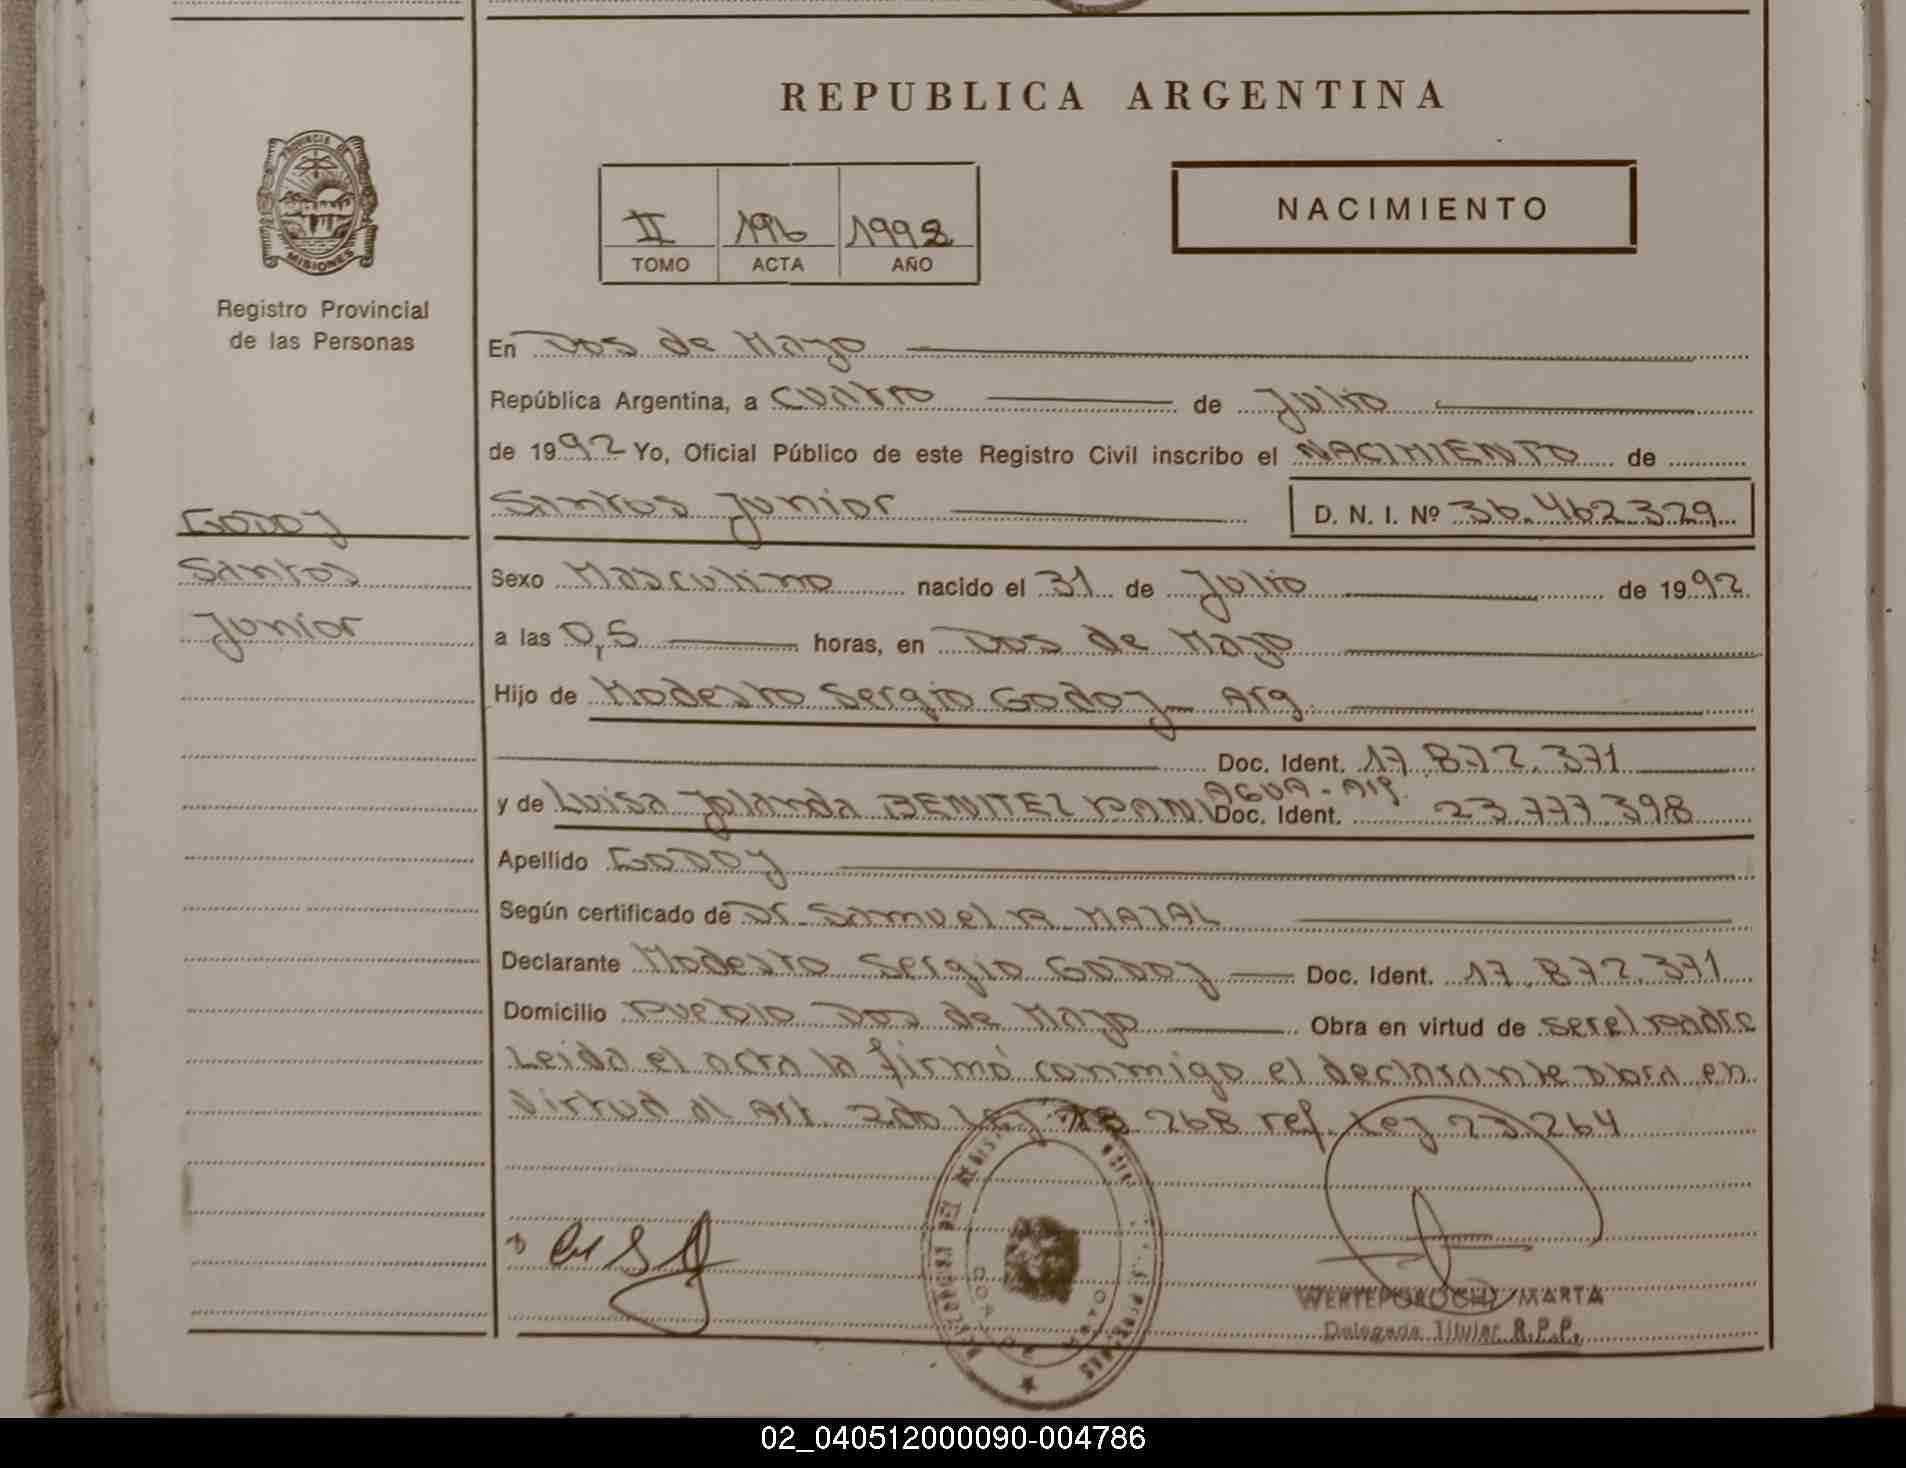 REPUBLICA ARGENTINA
PROVINCIA DE
MISIONES
Registro Provincial
de las Personas
II 196 1992
TOMO ACTA AÑO
NACIMIENTO
En Dos de Mayo
República Argentina, a cuatro de Julio
de 1992 Yo, Oficial Público de este Registro Civil inscribo el NACIMIENTO de
Santos Junior D. N. I. Nº 36.462.329
GODOY
Santos
Junior
Sexo Masculino nacido el 31 de Julio de 1992
a las 0,5 horas, en Dos de Mayo
Hijo de Modesto Sergio Godoy Arg.
Doc. Ident. 17.872.371
y de Luisa Yolanda BENITEZ PANIAGUA - Arg. Doc. Ident. 23.777.398
Apellido GODOY
Según certificado de Dr. Samuel R. MAZAL
Declarante Modesto Sergio GODOY Doc. Ident. 17.872.371
Domicilio Pueblo Dos de Mayo Obra en virtud de ser el padre
Leida el acta la firmó conmigo el declarante obra en
virtud al Art. 2do Ley 18.268 ref. Ley 23.264
WERTEPOROCHY MARTA
Delegada Titular R.P.P.
02_040512000090-004786